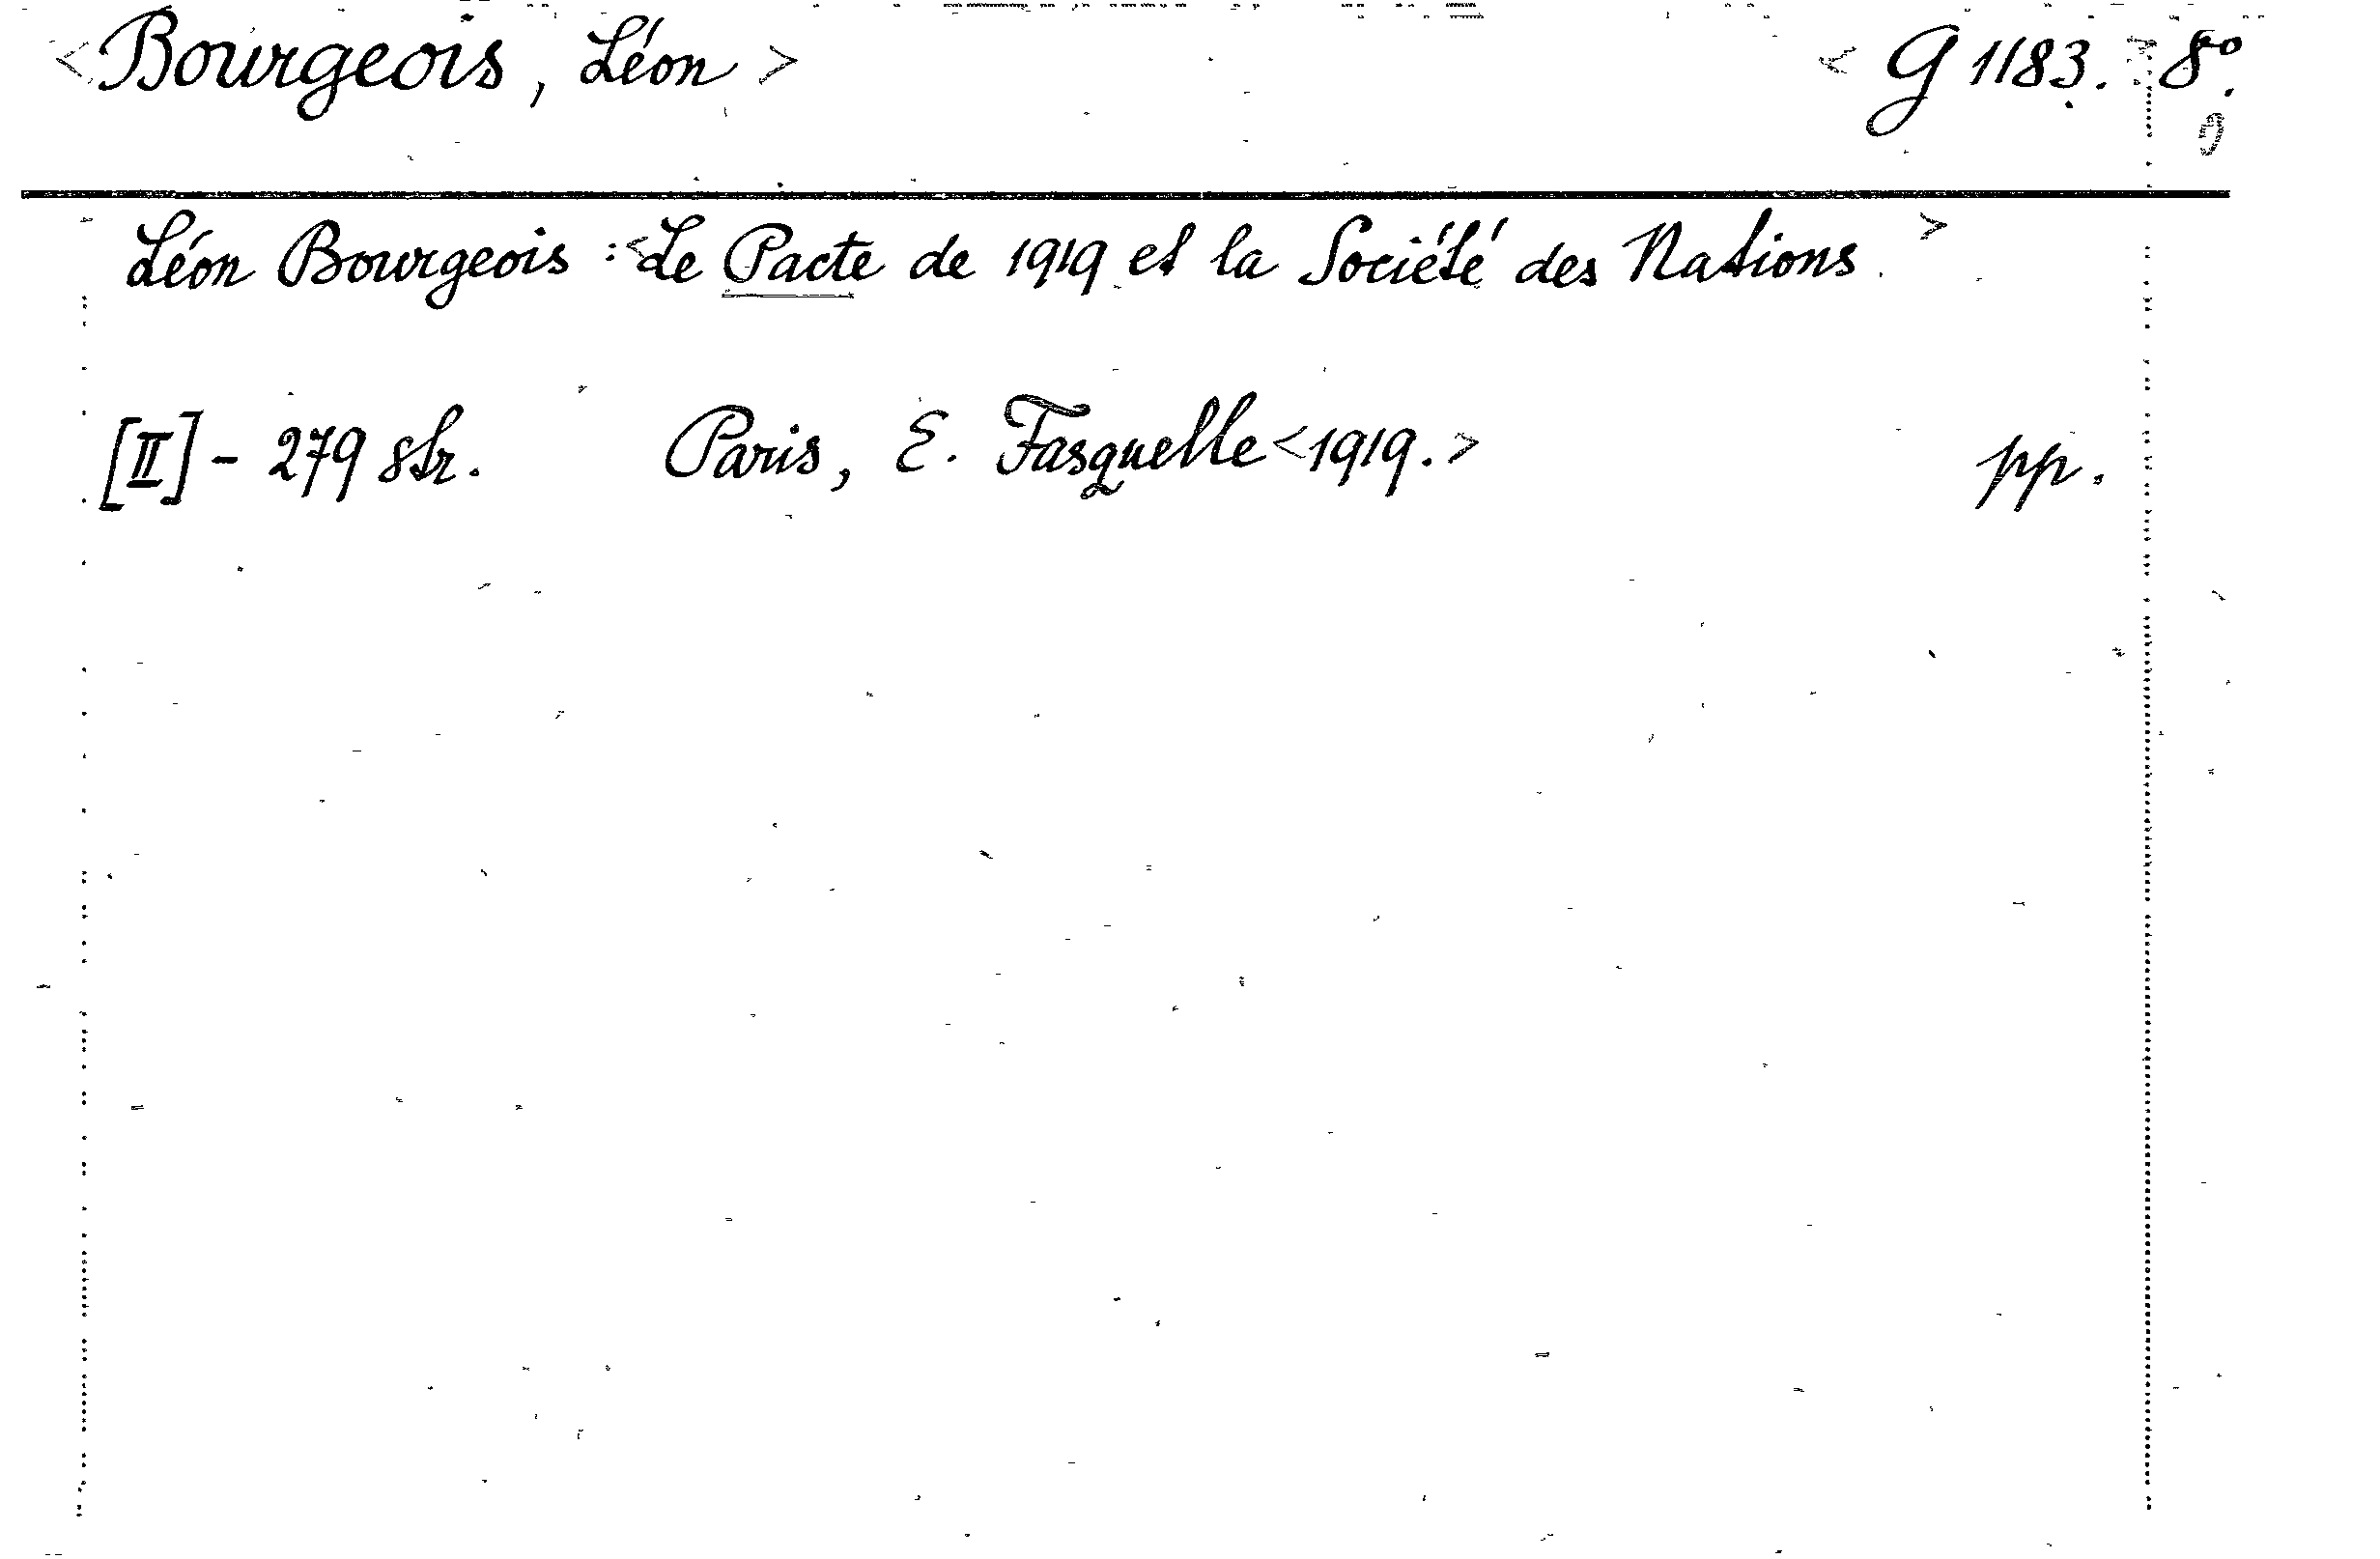 <Bourgeois, Léon> <G 1183.> 8°.
Léon Bourgeois : <Le Pacte de 1919 et la Société des Nations.>
[II] - 279 str. Paris, E. Fasquelle <1919.> pp.